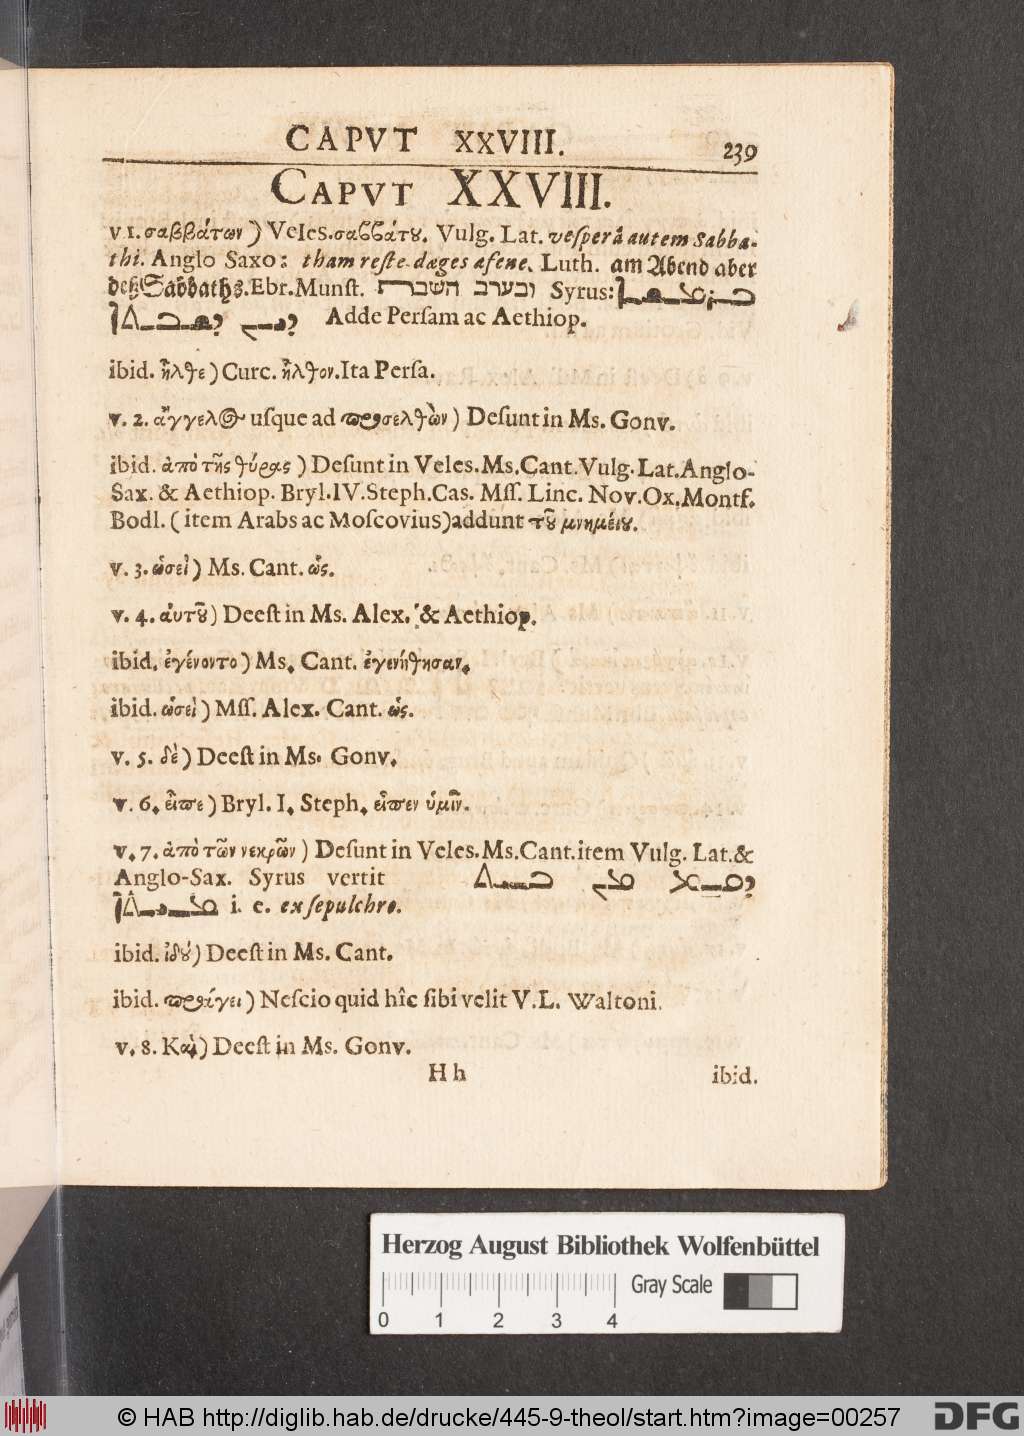 CAPVT XXVIII. 239
CAPVT XXVIII.
v 1. σαββάτων ) Veles. σαββάτȣ. Vulg. Lat. veſperâ autem Sabba-
thi. Anglo Saxo: tham reſte-dæges æfene. Luth. am Abend aber
deß Sabbaths. Ebr. Munſt. ובערב השבת Syrus: ܒܪܡܫܐ
ܕܝܢ Adde Perſam ac Aethiop.
ibid. ἦλθε ) Curc. ἦλθον. Ita Perſa.
v. 2. ἄγγελος uſque ad προσελθὼν ) Deſunt in Ms. Gonv.
ibid. ἀπὸ τῆς θύρας ) Deſunt in Veles. Ms. Cant. Vulg. Lat. Anglo-
Sax. & Aethiop. Bryl. IV. Steph. Cas. Mſſ. Linc. Nov. Ox. Montf.
Bodl. ( item Arabs ac Moſcovius) addunt τȣ͂ μνημείȣ.
v. 3. ὡσεὶ ) Ms. Cant. ὡς.
v. 4. ἀυτȣ͂ ) Deeſt in Ms. Alex. & Aethiop.
ibid. ἐγένοντο ) Ms. Cant. ἐγενήθησαν.
ibid. ὡσεὶ ) Mſſ. Alex. Cant. ὡς.
v. 5. δὲ ) Deeſt in Ms. Gonv.
v. 6. εἶπε ) Bryl. I. Steph. εἶπεν ὑμῖν.
v. 7. ἀπὸ τῶν νεκρῶν ) Deſunt in Veles. Ms. Cant. item Vulg. Lat. &
Anglo-Sax. Syrus vertit ܡܢ
i. e. ex ſepulchro.
ibid. ἰδȣ́ ) Deeſt in Ms. Cant.
ibid. προάγει ) Neſcio quid hîc ſibi velit V. L. Waltoni.
v. 8. Καὶ ) Deeſt in Ms. Gonv.
H h ibid.
Herzog August Bibliothek Wolfenbüttel
Gray Scale
0 1 2 3 4
© HAB http://diglib.hab.de/drucke/445-9-theol/start.htm?image=00257 DFG